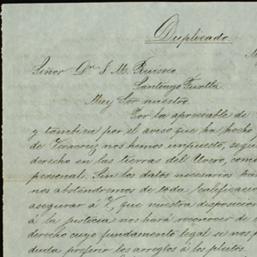 Duplicado
Señor Dn S. M. Ruiseco
Santiago Tuxtla
Muy Sor nuestro
Por la apreciable de
y tambien por el aviso que ha hecho
de Veracruz nos hemos impuesto, segun
derecho en las tierras del Uvero, como
personal. Sin los datos necesarios para
nos abstendremos de toda calificacion
asegurar á V. que nuestra disposicion
á la justicia nos hará reconocer de
derecho cuyo fundamento legal se nos
duda preferir los arreglos á los pleitos.